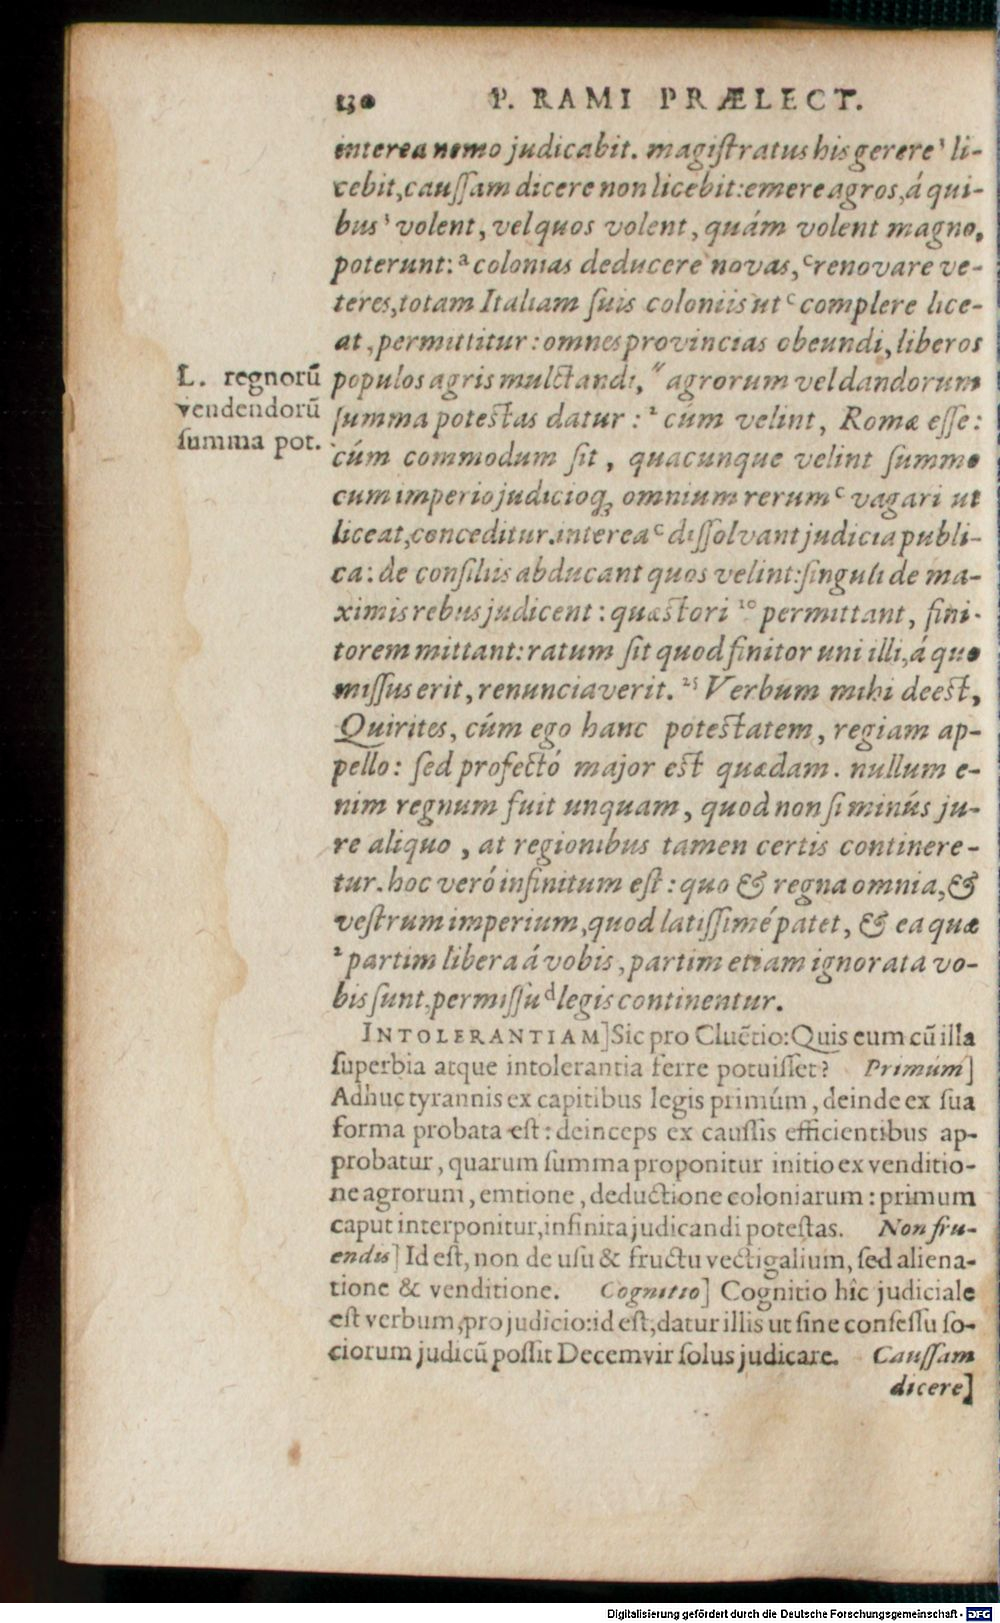 130 P. RAMI PRÆLECT.
interea nemo judicabit. magiſtratus his gerere¹ li-
cebit, cauſſam dicere non licebit: emere agros, á qui-
bus³ volent, vel quos volent, quám volent magno,
poterunt: ᵃ colonias deducere novas, ᶜ renovare ve-
teres, totam Italiam ſuis coloniis ut ᶜ complere lice-
at, permittitur: omnes provincias obeundi, liberos
L. regnorũ
vendendorũ
ſumma pot.
populos agris mulctandi, " agrorum vel dandorum
ſumma poteſtas datur: ² cúm velint, Romæ eſſe:
cúm commodum ſit, quacunque velint ſummo
cum imperio judicioq́ꝫ omnium rerum ᶜ vagari ut
liceat, conceditur. interea ᶜ diſſolvant judicia publi-
ca: de conſiliis abducant quos velint: ſinguli de ma-
ximis rebus judicent: quæſtori ¹⁰ permittant, fini-
torem mittant: ratum ſit quod finitor uni illi, á quo
miſſus erit, renunciaverit. ²⁵ Verbum mihi deeſt,
Quirites, cúm ego hanc poteſtatem, regiam ap-
pello: ſed profectó major eſt quædam. nullum e-
nim regnum fuit unquam, quod non ſi minús ju-
re aliquo, at regionibus tamen certis continere-
tur. hoc veró infinitum eſt: quo & regna omnia, &
veſtrum imperium, quod latiſſimé patet, & ea quæ
² partim libera á vobis, partim etiam ignorata vo-
bis ſunt, permiſſu ᵈ legis continentur.
INTOLERANTIAM] Sic pro Cluẽtio: Quis eum cũ illa
ſuperbia atque intolerantia ferre potuiſſet? Primúm]
Adhuc tyrannis ex capitibus legis primúm, deinde ex ſua
forma probata eſt: deinceps ex cauſſis efficientibus ap-
probatur, quarum ſumma proponitur initio ex venditio-
ne agrorum, emtione, deductione coloniarum: primum
caput interponitur, infinita judicandi poteſtas. Non fru-
endis] Id eſt, non de uſu & fructu vectigalium, ſed aliena-
tione & venditione. Cognitio] Cognitio hîc judiciale
eſt verbum, pro judicio: id eſt, datur illis ut ſine conſeſſu ſo-
ciorum judicũ poſſit Decemvir ſolus judicare. Cauſſam
dicere]
Digitalisierung gefördert durch die Deutsche Forschungsgemeinschaft - DFG